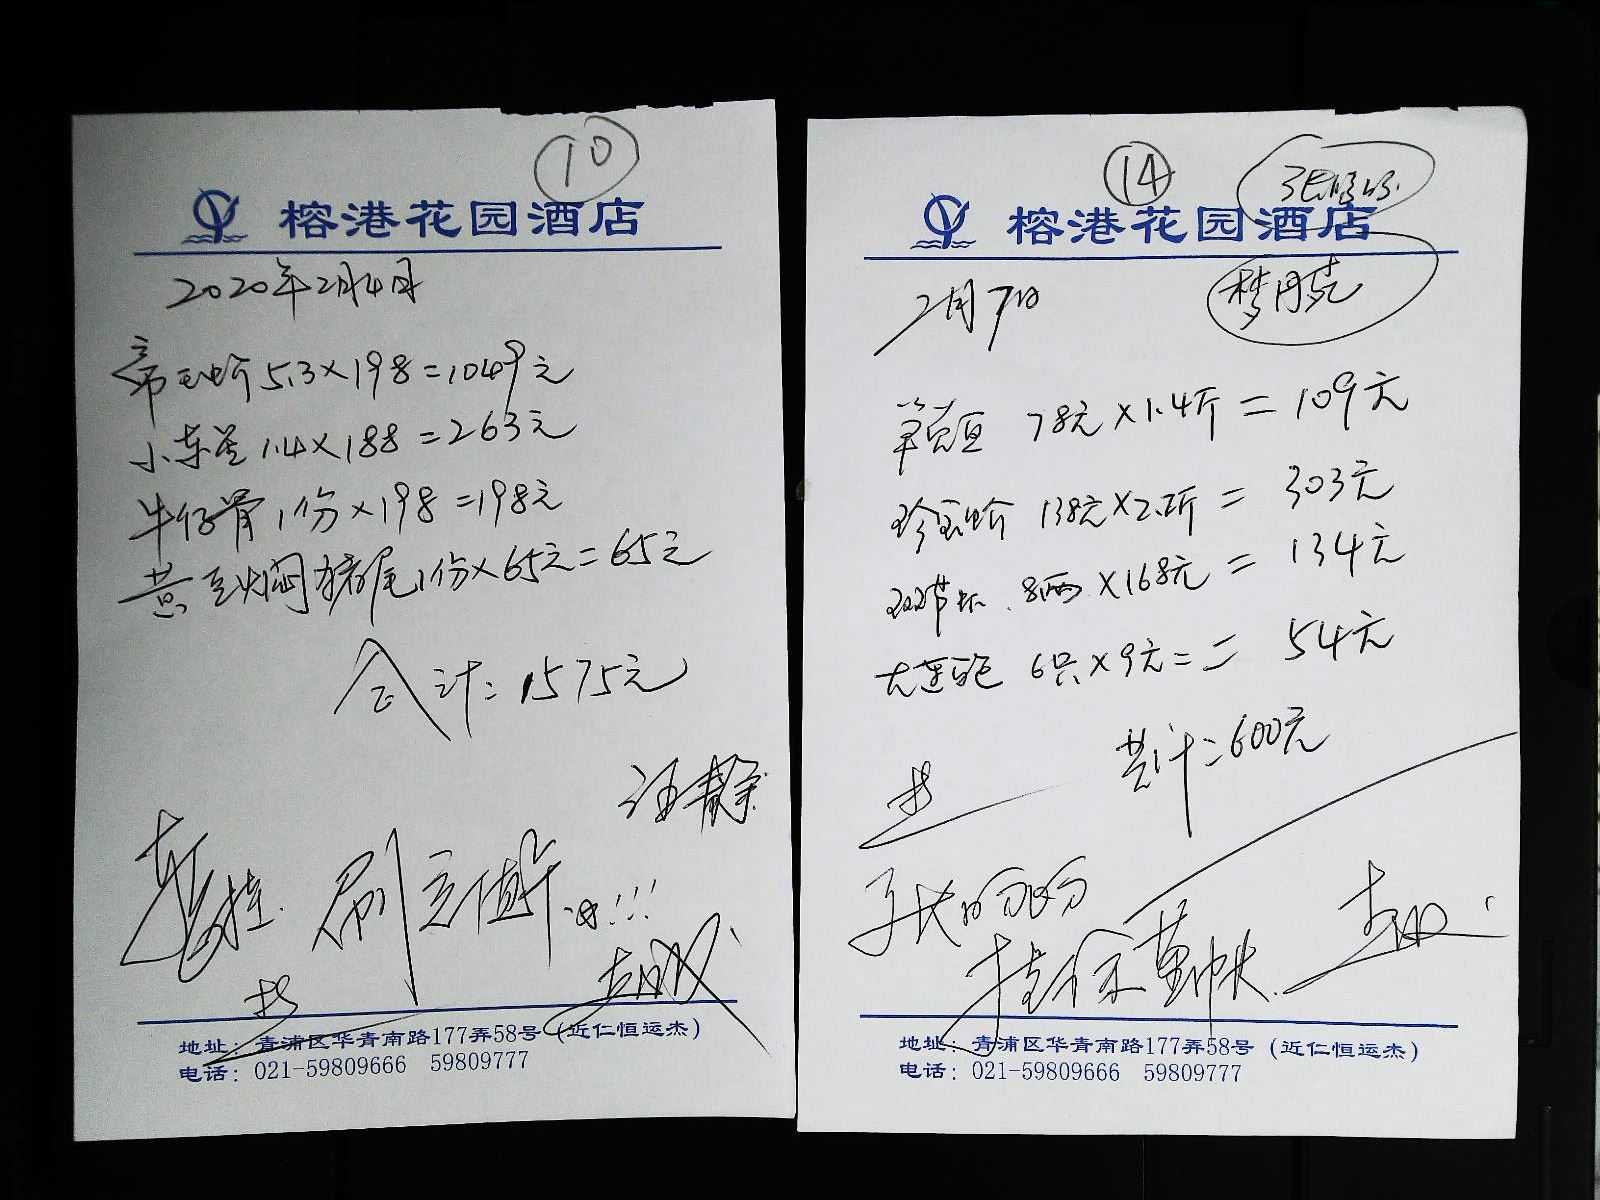 10
榕港花园酒店
2020年2月4日
帝王蚧 5.3×198=1049元
小东星 1.4×188=263元
牛仔骨 1份×198=198元
黄豆焖猪尾 1份×65元=65元
合计: 1575元
汪静
暂挂. 刷充值卡
地址: 青浦区华青南路177弄58号 (近仁恒运杰)
电话: 021-59809666 59809777
14
榕港花园酒店
2月7日
78元×1.4斤=109元
珍宝蚧 138元×2.2斤=303元
8两×168元=134元
大连鲍 6只×9元==54元
共计:600元
地址: 青浦区华青南路177弄58号 (近仁恒运杰)
电话: 021-59809666 59809777